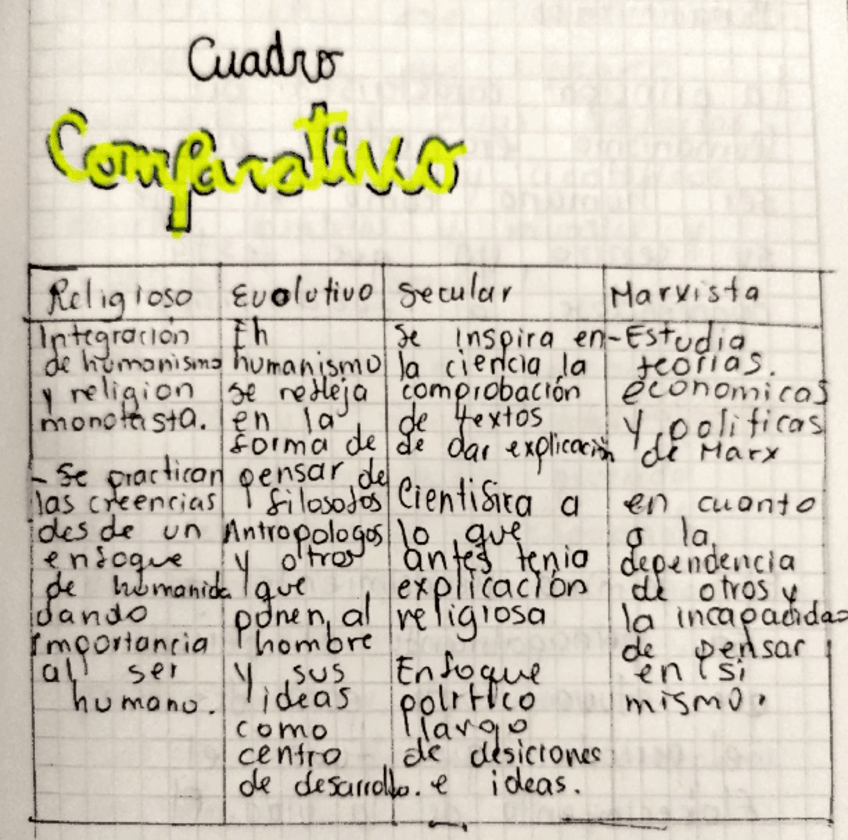 Cuadro
Comparativo
Religioso
Integración
de humanismo
y religion
monotista.
- Se practican
las creencias
desde un
enfoque
de humanida
dando
importancia
al ser
humano.
Evolutivo
Eh
humanismo
se refleja
en la
forma de
pensar de
filosofos
Antropologos
y otros
que
ponen al
hombre
y sus
ideas
como
centro
de desarrollo.
Secular
se inspira en
la ciencia la
comprobación
de textos
de dar explicación
Cientifica a
lo que
antes tenia
explicación
religiosa
Enfoque
politico
llargo
de desiciones
e ideas.
Marxista
-Estudia
teorias.
economicas
y politicas
de Marx
en cuanto
a la
dependencia
de otros y
la incapacidad
de pensar
en si
mismo.